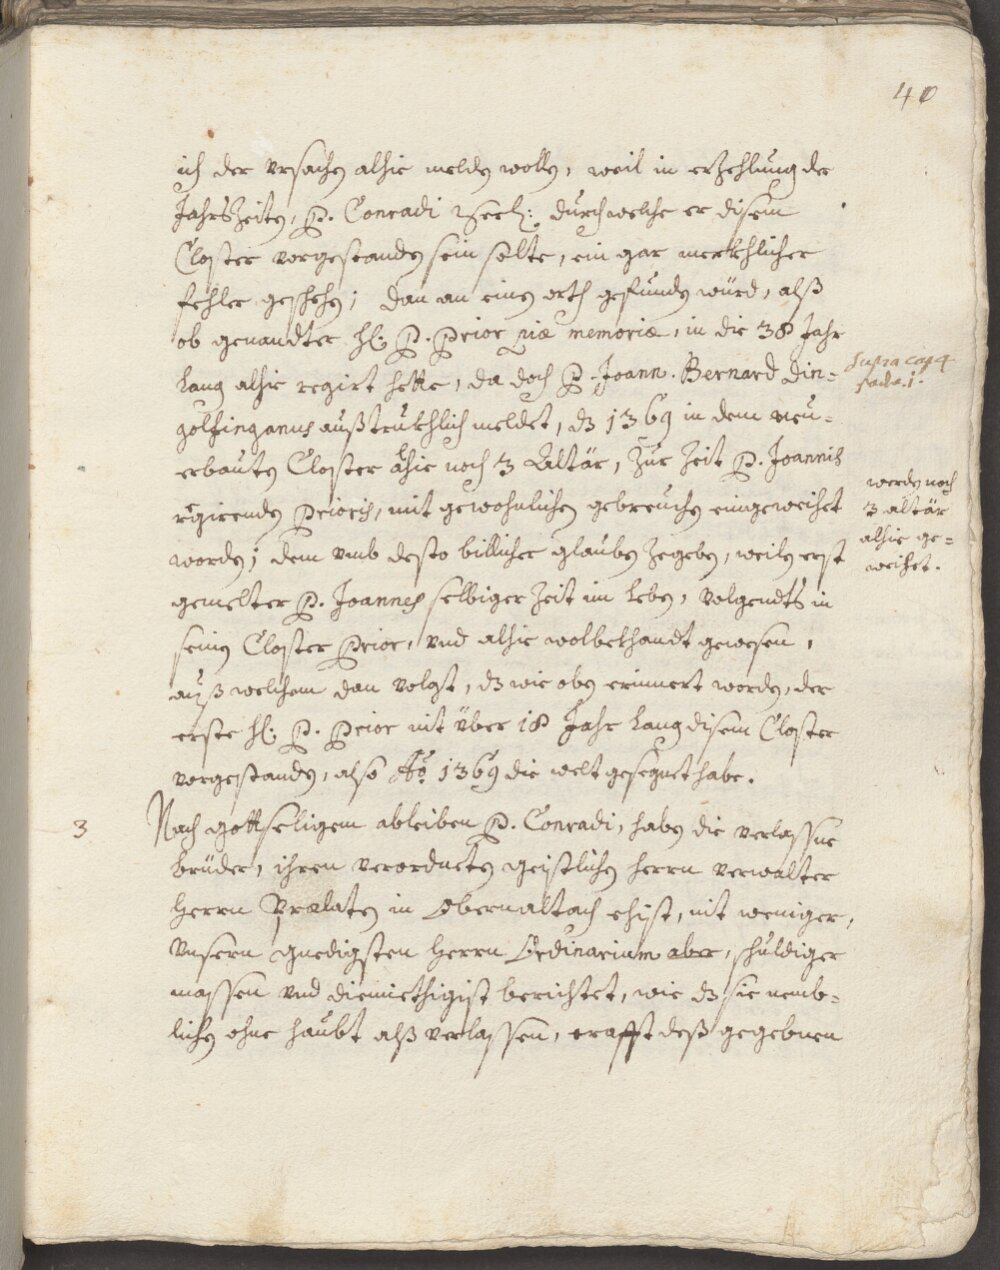 40
ich der vrsachen alhie melden wollen, weil in erzehlung der
Jahrszeiten, P. Conradi Seel: durch welche er disem
Closter vorgestanden sein solte, ein gar merkhlicher
fehler geschehen; dan an einen orth gefunden würd, alß
ob genandter H: P. Prior piæ memoriæ, in die 38 Jahr
lang alhie regirt hette, da doch P. Joann. Bernard Din-
golfinganus außtrukhlich meldet, dz 1369 in dem neu-
erbauten Closter alhie noch 3 Altär, zur Zeit P. Joannis
regirenden Prioris, mit gewohnlichen gebreuchen eingeweihet
worden; dem vmb desto billicher glauben zegeben, weilen erst
gemelter P. Joannes selbiger Zeit im leben, volgendts in
seinen Closter Prior, vnd alhie wolbekhandt gewesen,
auß welchem dan volgt, dz wie oben erinnert worden, der
erste H: P. Prior nit über 18 Jahr lang disem Closter
vorgestanden, also Ao. 1369 die welt gesegnet habe.
supra cap 4
werden noch
3 altär
alhie ge-
weihet.
3
Nach gottseligem ableiben P. Conradi, haben die verlassne
brüder, ihren verordneten geistlichen herrn verwalter
herrn Prælaten in Obernaltach ehist, nit weniger,
vnsern gnedigsten herrn Ordinarium aber, schuldiger
massen vnd diemiethigist berichtet, wie dz sie nemb-
lichen ohne haubt alß verlassen, crafft deß gegebnen